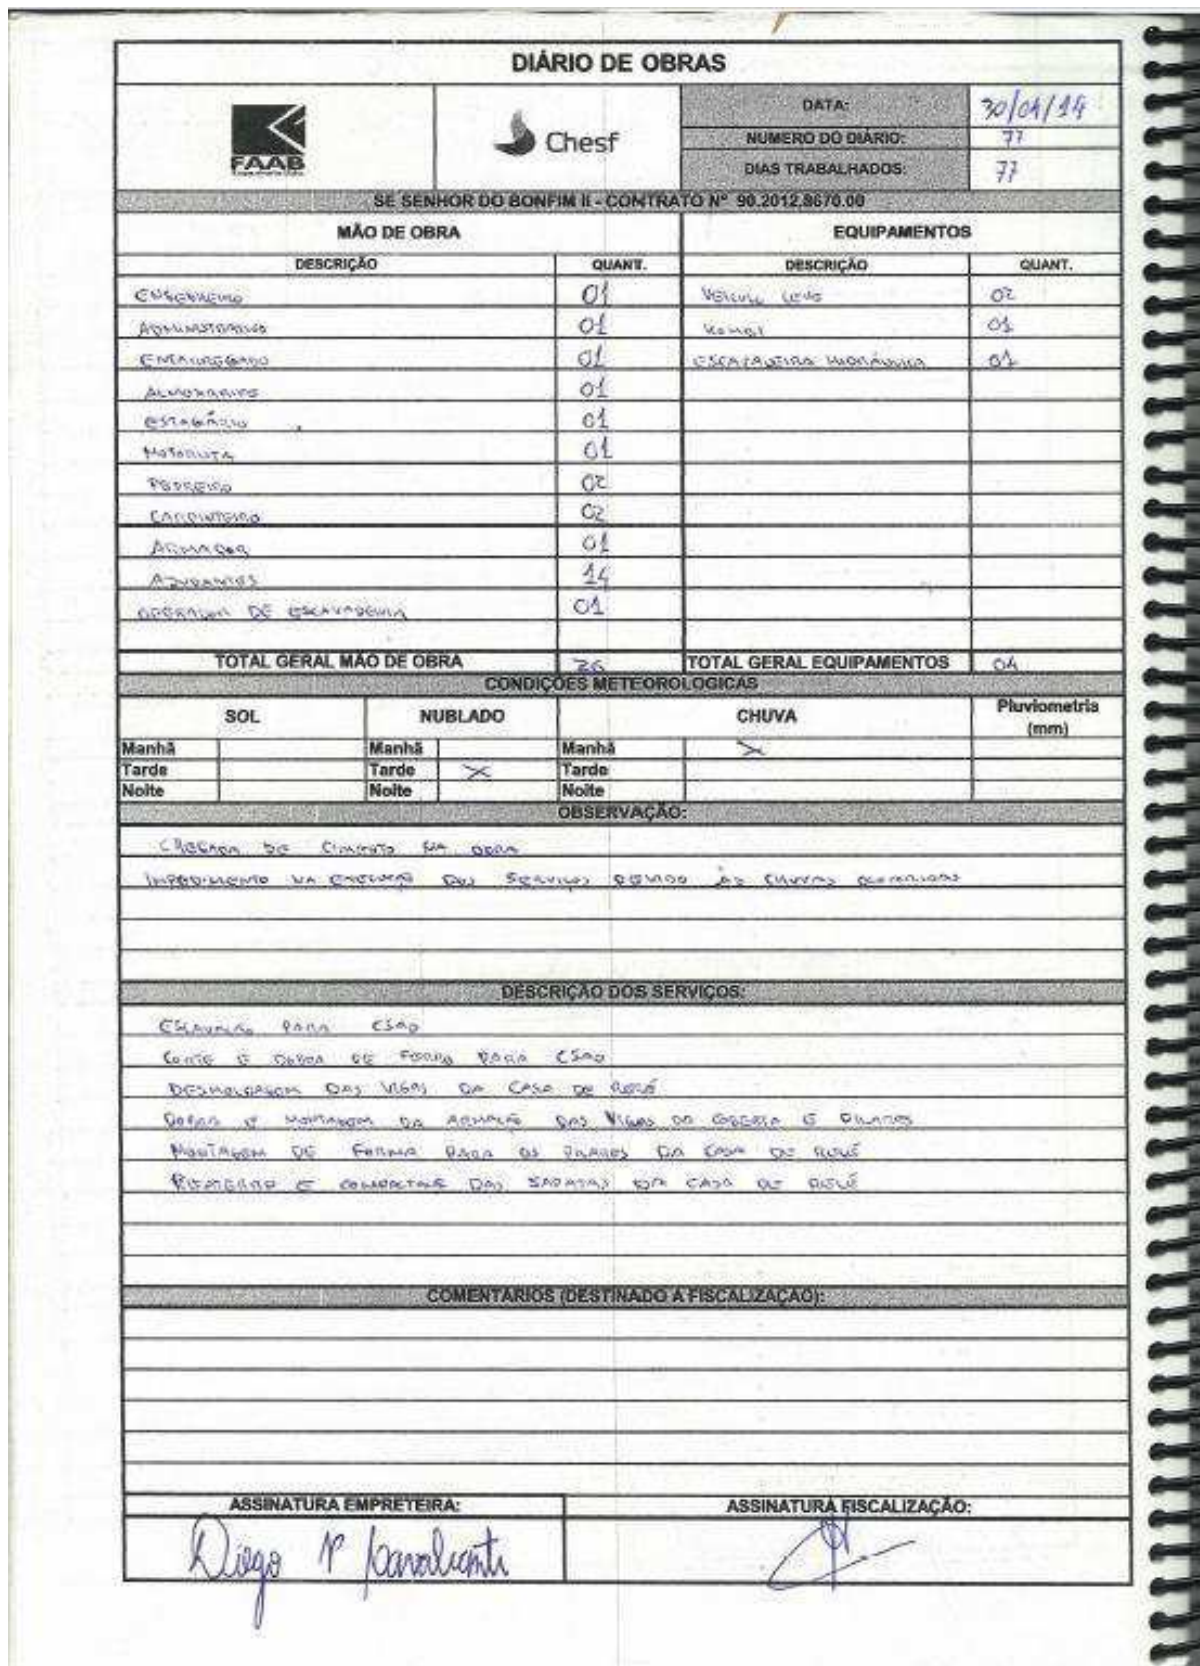 DIÁRIO DE OBRAS
FAAB
Chesf
DATA: 30/04/14
NUMERO DO DIÁRIO: 77
DIAS TRABALHADOS: 77
SE SENHOR DO BONFIM II - CONTRATO Nº 90.2012.8670.00
MÃO DE OBRA EQUIPAMENTOS
DESCRIÇÃO QUANT. DESCRIÇÃO QUANT.
ENGENHEIRO 01 VEICULO LEVE 02
ADMINISTRATIVO 01 KOMBI 01
ENCARREGADO 01 ESCAVADEIRA HIDRÁULICA 01
ALMOXARIFE 01
ESTAGIÁRIO 01
MOTORISTA 01
PEDREIRO 02
CARPINTEIRO 02
ARMADOR 01
AJUDANTES 14
OPERADOR DE ESCAVADEIRA 01
TOTAL GERAL MÃO DE OBRA 26 TOTAL GERAL EQUIPAMENTOS 04
CONDIÇÕES METEOROLOGICAS
SOL NUBLADO CHUVA Pluviometria (mm)
Manhã Manhã Manhã X
Tarde Tarde X Tarde
Noite Noite Noite
OBSERVAÇÃO:
CHEGADA DE CIMENTO NA OBRA
IMPEDIMENTO NA EXECUÇÃO DOS SERVIÇOS DEVIDO ÀS CHUVAS OCORRIDAS
DESCRIÇÃO DOS SERVIÇOS:
ESCAVAÇÃO PARA CSAO
CORTE E DOBRA DE FERRO PARA CSAO
DESMOLDAGEM DAS VIGAS DA CASA DE RELÉ
DOBRA E MONTAGEM DA ARMAÇÃO DAS VIGAS DA COBERTA E PILARES
MONTAGEM DE FORMA PARA OS PILARES DA CASA DE RELÉ
REATERRO E COMPACTAÇÃO DAS SAPATAS DA CASA DE RELÉ
COMENTÁRIOS (DESTINADO A FISCALIZAÇÃO):
ASSINATURA EMPRETEIRA: ASSINATURA FISCALIZAÇÃO:
Diego Cavalcanti